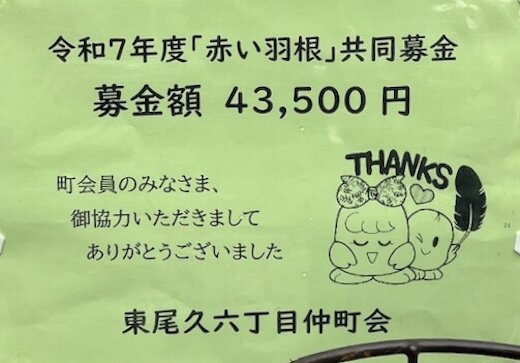 令和7年度「赤い羽根」共同募金
募金額 43,500 円
THANKS
町会員のみなさま、
御協力いただきまして
ありがとうございました
東尾久六丁目仲町会